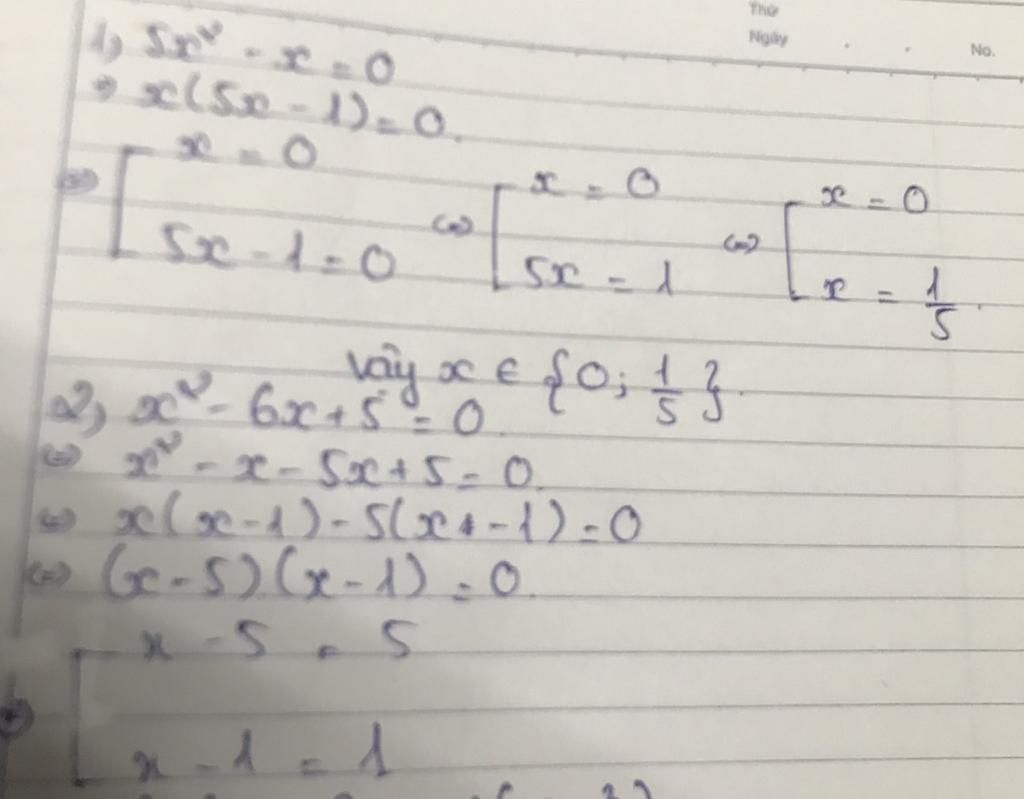 Thứ
Ngày . . No.
1, 5x² - x = 0
⇒ x(5x - 1) = 0.
⇔ [ x = 0 ⇔ [ x = 0 ⇔ [ x = 0
5x - 1 = 0 5x = 1 x = 1/5.
Vậy x ∈ {0; 1/5}.
2, x² - 6x + 5 = 0.
⇔ x² - x - 5x + 5 = 0.
⇔ x(x - 1) - 5(x - 1) = 0
⇔ (x - 5)(x - 1) = 0.
⇔ [ x - 5 = 5
x - 1 = 1